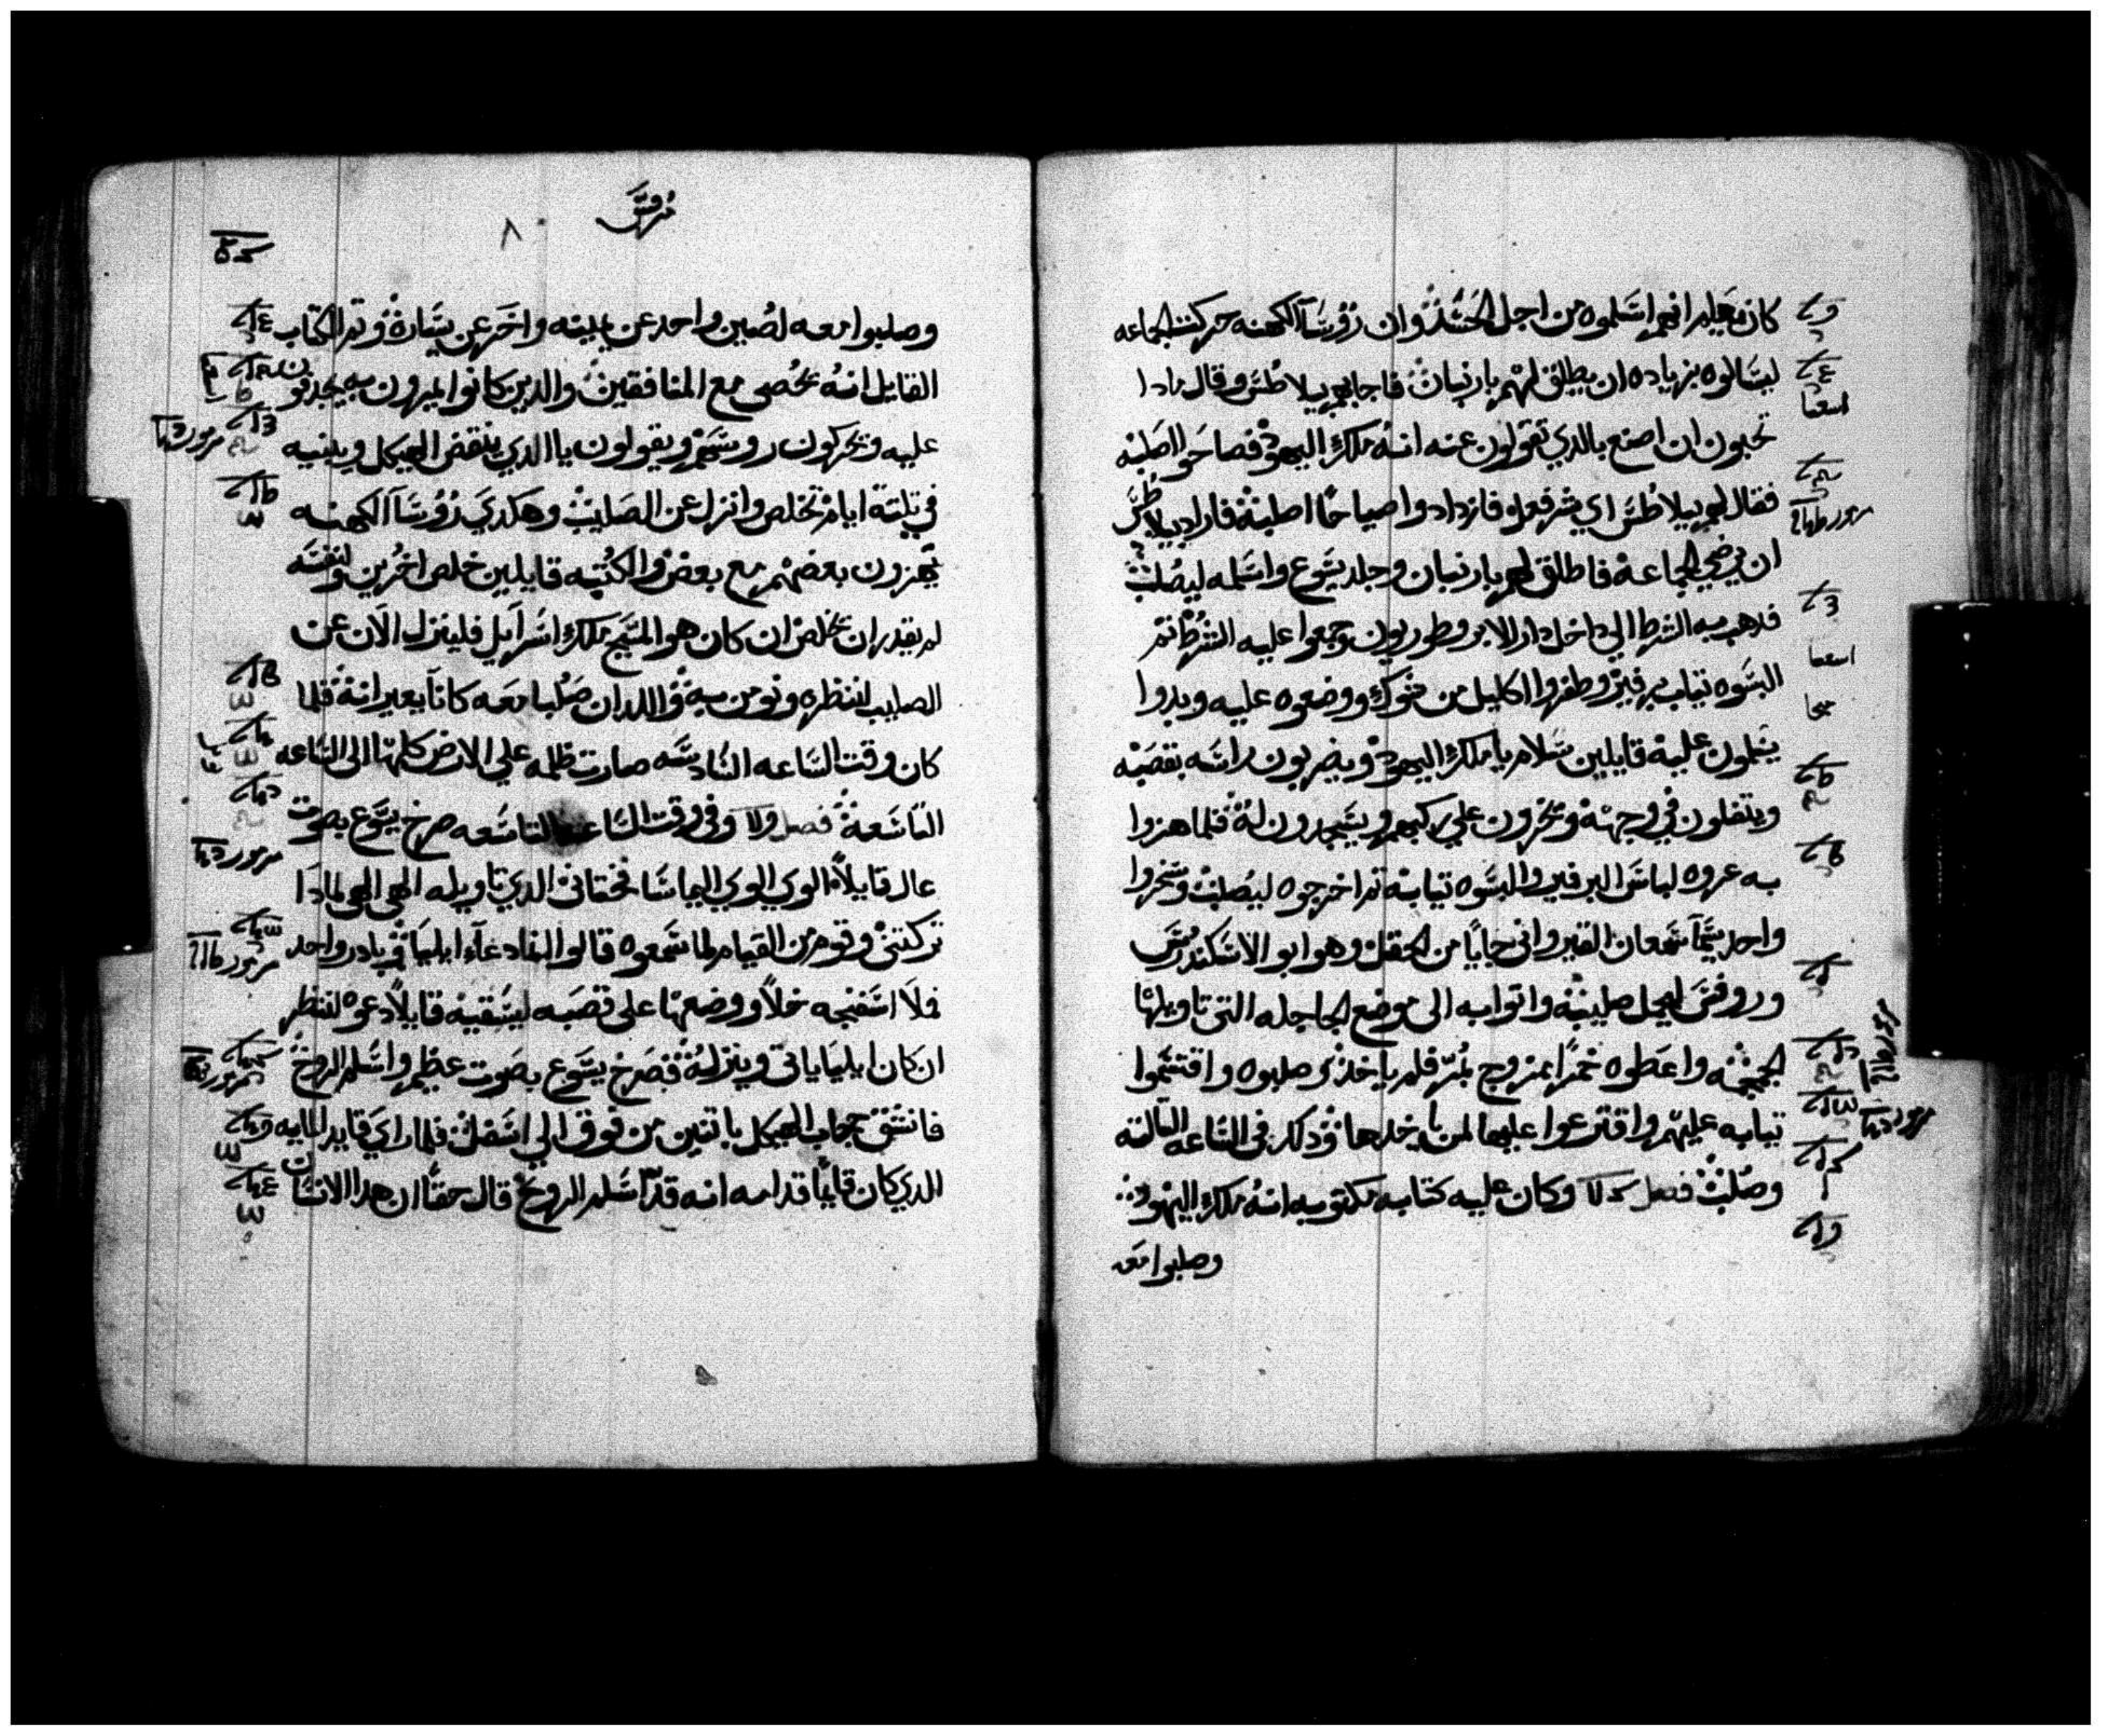 كان يعلم انهم اسلموه من اجل الحسد وان روسا الكهنه حركت الجماعه
ليسالوه بزياده ان يطلق لهم بارنبان فاجابهم بيلاطس وقال مادا
تحبون ان اصنع بالدي تقولون عنه انه ملك اليهود فصاحوا اصلبه
فقال لهم بيلاطس اي شر فعل فازدادوا صياحا اصلبه فاراد بيلاطس
ان يرضي الجماعه فاطلق لهم بارنبان وجلد يسوع واسلمه ليصلب
فدهب به الشرط الي داخل دار الابروطوريون وجمعوا عليه الشرط تم
البسوه تياب برفير وظفروا اكليل من شوك ووضعوه عليه وبدوا
يسلمون عليه قايلين سلام يا ملك اليهود ويضربون راسه بقصبه
ويتفلون في وجهه ويخرون علي ركبهم ويسجدون له فلما هزوا
به عروه لباس البرفير والبسوه تيابه تم اخرجوه ليصلب وسخروا
واحد يسما سمعان القيرواني جايا من الحقل وهو ابو الاسكندرس
وروفس ليحمل صليبه واتوا به الى موضع الجاجله التي تاويلها
الجمجمه واعطوه خمرا ممزوج بمر فلم ياخد تم صلبوه واقتسموا
تيابه عليهم واقترعوا عليها لمن ياخدها ودلك في الساعه التالته
وصلب فصل وكان عليه كتابه مكتوبه انه ملك اليهود
وصلبوا معه
مرقس
٨٠
وصلبوا معه لصين واحد عن يمينه واخر عن يساره وتم الكتاب
القايل انه يحصى مع المنافقين والدين كانوا يمرون به يجدفون
عليه ويحركون روسهم ويقولون يا الدي ينقض الهيكل ويبنيه
في تلتة ايام تخلص وانزل عن الصليب وهكدي روسا الكهنه
يهزون بعضهم مع بعض والكتبه قايلين خلص اخرين ونفسه
لم يقدر ان يخلص ان كان هو المسيح ملك اسرايل فلينزل الان عن
الصليب لننظره ونومن به واللدان صلبا معه كانا يعيرانه فلما
كان وقت الساعه السادسه صارت ظلمه علي الارض كلها الى الساعه
التاسعة فصل وفي وقت الساعه التاسعه صرخ يسوع بصوت
عال قايلا الوي الوي اليما سافختاني الدي تاويله الهي الهي لمادا
تركتني وقوم من القيام لما سمعوه قالوا النادعاء ايليا فبادر واحد
فملا اسفنجه خلا ووضعها على قصبه ليسقيه قايلا دعوه لننظر
ان كان ايليا ياتي وينزله فصرخ يسوع بصوت عظيم واسلم الروح
فانشق حجاب الهيكل باتنين من فوق الي اسفل فلما راي قايد المايه
الدي كان قايما قدامه انه قد اسلم الروح قال حقا ان هدا الانسان